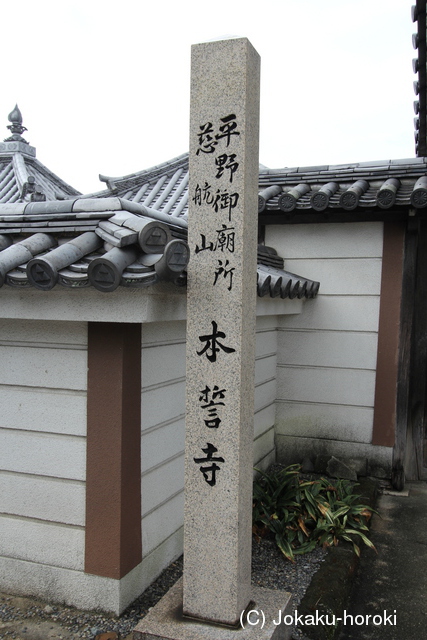 平野御廟所
慈航山
本誓寺
(C) Jokaku-horoki